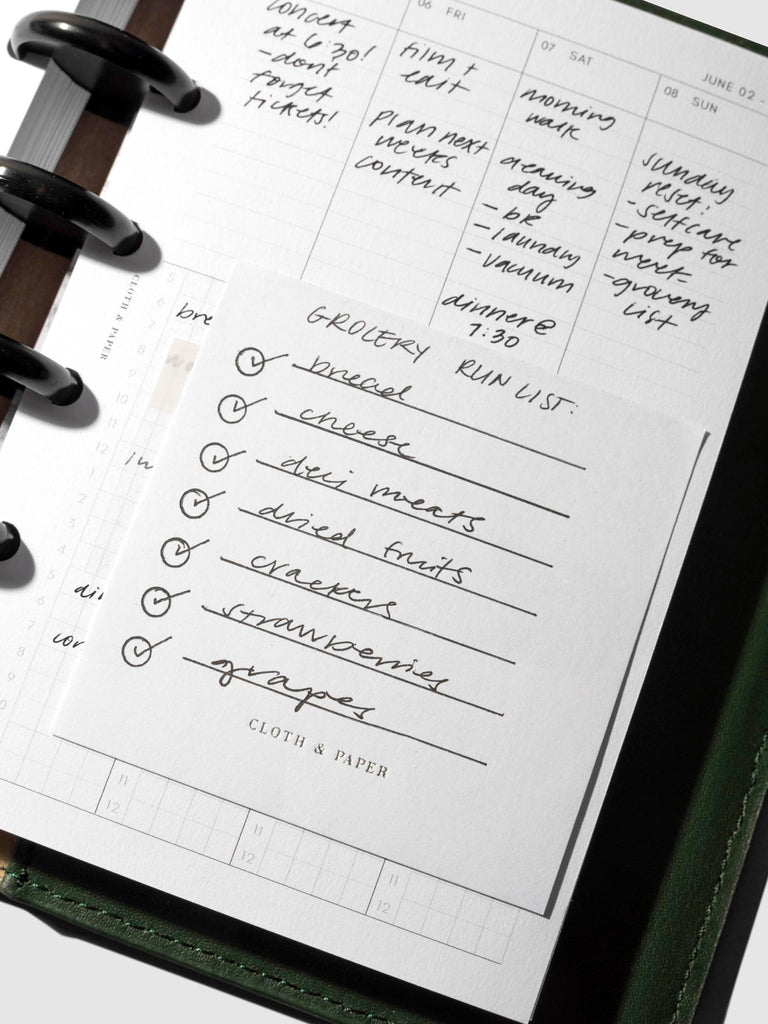 concert
at 6:30!
-don't
forget
tickets!
06 FRI
film +
edit
plan next
weeks
content
07 SAT
morning
walk
cleaning
day
- br
- laundry
- vacuum
dinner @
7:30
JUNE 02 -
08 SUN
sunday
reset:
-selfcare
-prep for
week
-grocery
list
CLOTH & PAPER
5
6
7
8
9
10
11
12
1
2
3
4
5
6
7
8
9
GROCERY RUN LIST:
bread
cheese
deli meats
dried fruits
crackers
strawberries
grapes
CLOTH & PAPER
11
12
11
12
11
12